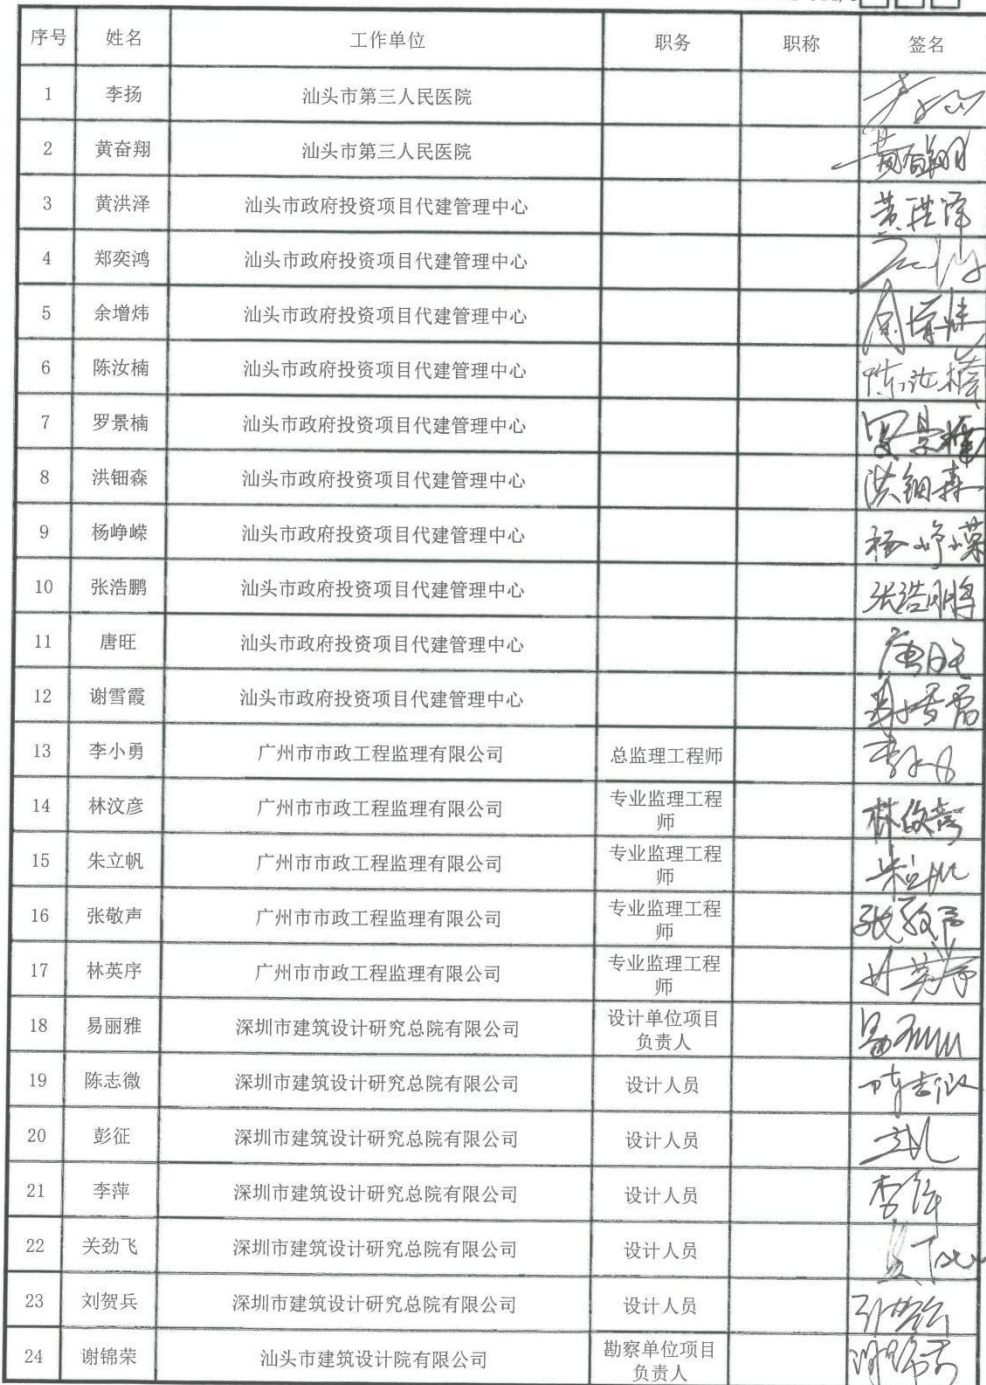 序号 姓名 工作单位 职务 职称 签名
1 李扬 汕头市第三人民医院
2 黄奋翔 汕头市第三人民医院 黄奋翔
3 黄洪泽 汕头市政府投资项目代建管理中心 黄洪泽
4 郑奕鸿 汕头市政府投资项目代建管理中心
5 余增炜 汕头市政府投资项目代建管理中心
6 陈汝楠 汕头市政府投资项目代建管理中心 陈汝楠
7 罗景楠 汕头市政府投资项目代建管理中心 罗景楠
8 洪钿森 汕头市政府投资项目代建管理中心 洪钿森
9 杨峥嵘 汕头市政府投资项目代建管理中心 杨峥嵘
10 张浩鹏 汕头市政府投资项目代建管理中心 张浩鹏
11 唐旺 汕头市政府投资项目代建管理中心 唐旺
12 谢雪霞 汕头市政府投资项目代建管理中心
13 李小勇 广州市市政工程监理有限公司 总监理工程师
14 林汶彦 广州市市政工程监理有限公司 专业监理工程
师
15 朱立帆 广州市市政工程监理有限公司 专业监理工程
师
16 张敬声 广州市市政工程监理有限公司 专业监理工程
师 张敬声
17 林英序 广州市市政工程监理有限公司 专业监理工程
师 林英序
18 易丽雅 深圳市建筑设计研究总院有限公司 设计单位项目
负责人
19 陈志微 深圳市建筑设计研究总院有限公司 设计人员 陈志微
20 彭征 深圳市建筑设计研究总院有限公司 设计人员
21 李萍 深圳市建筑设计研究总院有限公司 设计人员 李萍
22 关劲飞 深圳市建筑设计研究总院有限公司 设计人员
23 刘贺兵 深圳市建筑设计研究总院有限公司 设计人员
24 谢锦荣 汕头市建筑设计院有限公司 勘察单位项目
负责人